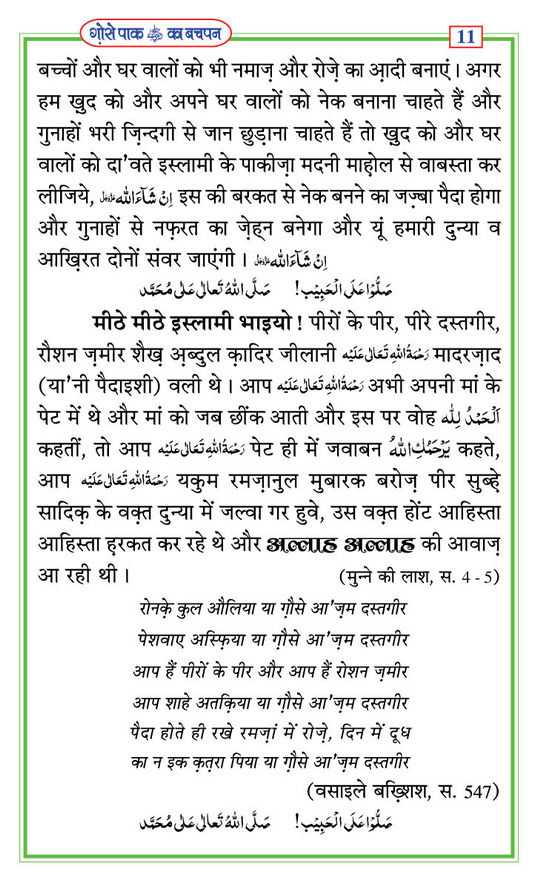 ग़ौसे पाक ﷫ का बचपन
11
बच्चों और घर वालों को भी नमाज़ और रोज़े का आ़दी बनाएं। अगर
हम ख़ुद को और अपने घर वालों को नेक बनाना चाहते हैं और
गुनाहों भरी ज़िन्दगी से जान छुड़ाना चाहते हैं तो ख़ुद को और घर
वालों को दा'वते इस्लामी के पाकीज़ा मदनी माह़ोल से वाबस्ता कर
लीजिये, اِنْ شَآءَاللّٰه इस की बरकत से नेक बनने का जज़्बा पैदा होगा
और गुनाहों से नफ़रत का ज़ेह्न बनेगा और यूं हमारी दुन्या व
आख़िरत दोनों संवर जाएंगी। اِنْ شَآءَاللّٰه
صَلُّوْا عَلَى الْحَبِيْب! صَلَّى اللهُ تَعَالٰى عَلٰى مُحَمَّد
मीठे मीठे इस्लामी भाइयो! पीरों के पीर, पीरे दस्तगीर,
रौशन ज़मीर शैख़ अ़ब्दुल क़ादिर जीलानी رَحْمَةُ اللهِ تَعَالٰى عَلَيْه मादरज़ाद
(या'नी पैदाइशी) वली थे। आप رَحْمَةُ اللهِ تَعَالٰى عَلَيْه अभी अपनी मां के
पेट में थे और मां को जब छींक आती और इस पर वोह اَلْحَمْدُ لِلّٰه
कहतीं, तो आप رَحْمَةُ اللهِ تَعَالٰى عَلَيْه पेट ही में जवाबन يَرْحَمُكِ اللهُ कहते,
आप رَحْمَةُ اللهِ تَعَالٰى عَلَيْه यकुम रमज़ानुल मुबारक बरोज़ पीर सुब्ह़े
सादिक़ के वक़्त दुन्या में जल्वा गर हुवे, उस वक़्त होंट आहिस्ता
आहिस्ता ह़रकत कर रहे थे और अल्लाह अल्लाह की आवाज़
आ रही थी। (मुन्ने की लाश, स. 4-5)
रोनक़े कुल औलिया या ग़ौसे आ'ज़म दस्तगीर
पेशवाए अस्फ़िया या ग़ौसे आ'ज़म दस्तगीर
आप हैं पीरों के पीर और आप हैं रोशन ज़मीर
आप शाहे अतक़िया या ग़ौसे आ'ज़म दस्तगीर
पैदा होते ही रखे रमज़ां में रोज़े, दिन में दूध
का न इक क़त़रा पिया या ग़ौसे आ'ज़म दस्तगीर
(वसाइले बख़्शिश, स. 547)
صَلُّوْا عَلَى الْحَبِيْب! صَلَّى اللهُ تَعَالٰى عَلٰى مُحَمَّد